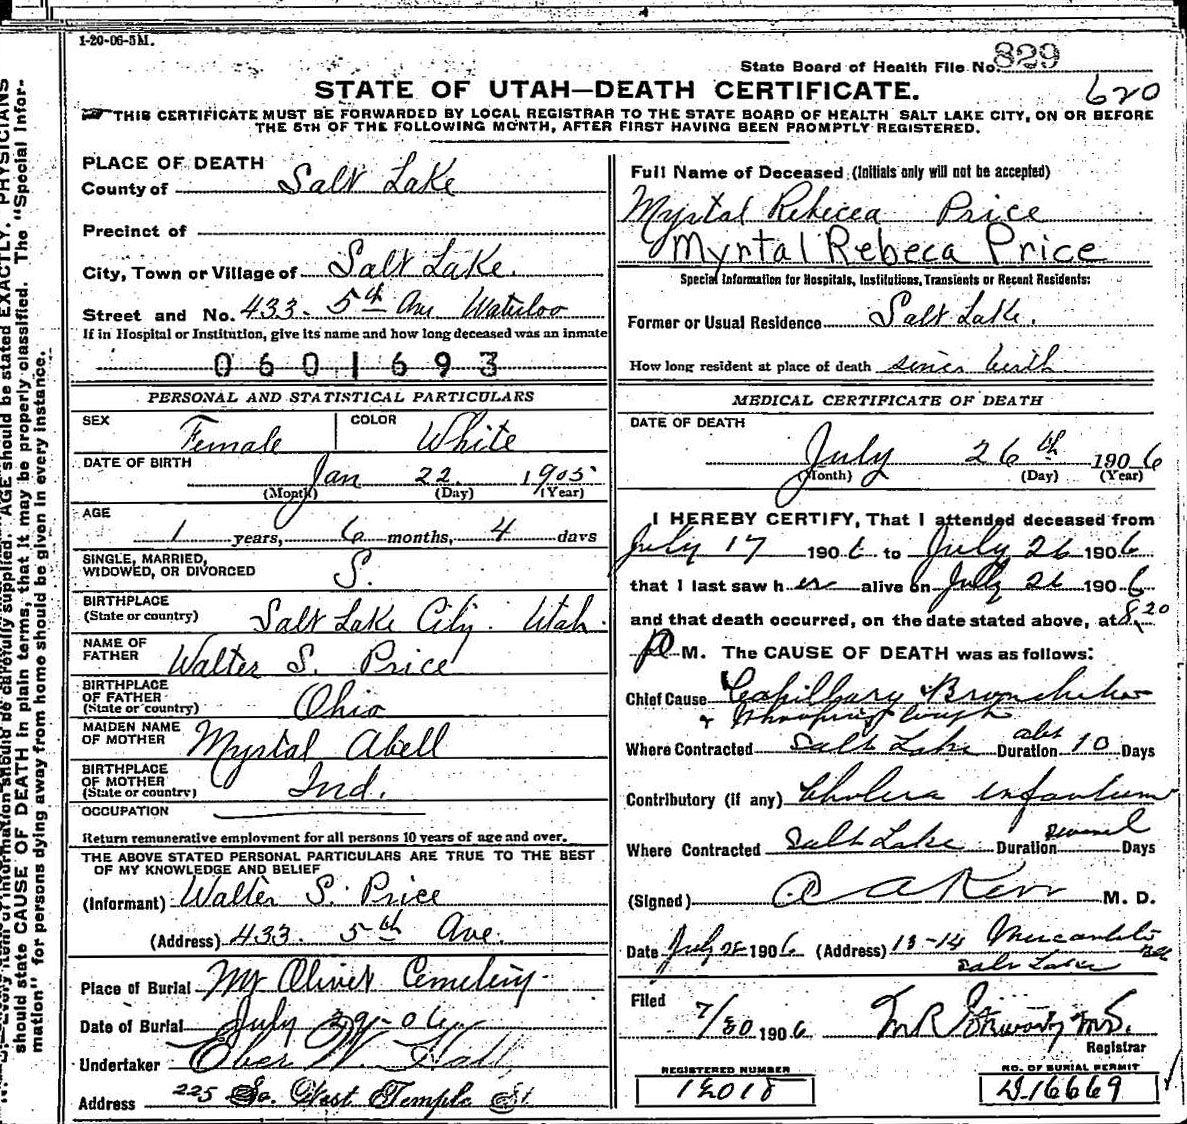 1-20-06-5M.
State Board of Health File No. 829
620
STATE OF UTAH—DEATH CERTIFICATE.
THIS CERTIFICATE MUST BE FORWARDED BY LOCAL REGISTRAR TO THE STATE BOARD OF HEALTH SALT LAKE CITY, ON OR BEFORE
THE 5TH OF THE FOLLOWING MONTH, AFTER FIRST HAVING BEEN PROMPTLY REGISTERED.
PLACE OF DEATH
County of Salt Lake
Precinct of
City, Town or Village of Salt Lake.
Street and No. 433. 5th Ave Waterloo
If in Hospital or Institution, give its name and how long deceased was an inmate
0601693
PERSONAL AND STATISTICAL PARTICULARS
SEX Female COLOR White
DATE OF BIRTH Jan 22 1905
(Month) (Day) (Year)
AGE
1 years, 6 months, 4 days
SINGLE, MARRIED,
WIDOWED, OR DIVORCED S.
BIRTHPLACE
(State or country) Salt Lake City. Utah.
NAME OF
FATHER Walter S. Price
BIRTHPLACE
OF FATHER
(State or country) Ohio
MAIDEN NAME
OF MOTHER Myrtal Abell
BIRTHPLACE
OF MOTHER
(State or country) Ind.
OCCUPATION
Return remunerative employment for all persons 10 years of age and over.
THE ABOVE STATED PERSONAL PARTICULARS ARE TRUE TO THE BEST
OF MY KNOWLEDGE AND BELIEF
(Informant) Walter S. Price
(Address) 433. 5th Ave.
Place of Burial Mt Olivet Cemetery.
Date of Burial July 29-06
Undertaker Eber W. Hall
Address 225 So. West Temple St.
Full Name of Deceased (Initials only will not be accepted)
Myrtal Rebecca Price
Myrtal Rebeca Price
Special Information for Hospitals, Institutions, Transients or Recent Residents:
Former or Usual Residence Salt Lake.
How long resident at place of death since birth
MEDICAL CERTIFICATE OF DEATH
DATE OF DEATH
July 26th 1906
(Month) (Day) (Year)
I HEREBY CERTIFY, That I attended deceased from
July 17 1906 to July 26 1906
that I last saw her alive on July 26 1906
and that death occurred, on the date stated above, at 8.20
p M. The CAUSE OF DEATH was as follows:
Chief Cause Capillary Bronchitis
+ Whooping Cough
Where Contracted Salt Lake Duration abt 10 Days
Contributory (if any) Cholera infantum
Where Contracted Salt Lake Duration several Days
(Signed) A Kerr M. D.
Date July 28 1906 (Address) 13-14 Mercantile
Salt Lake
Filed 7/30 1906 M.D.
Registrar
REGISTERED NUMBER
NO. OF BURIAL PERMIT
D-16669
AGE should be stated EXACTLY. PHYSICIANS
should state CAUSE OF DEATH in plain terms, that it may be properly classified. The "Special Infor-
mation" for persons dying away from home should be given in every instance.